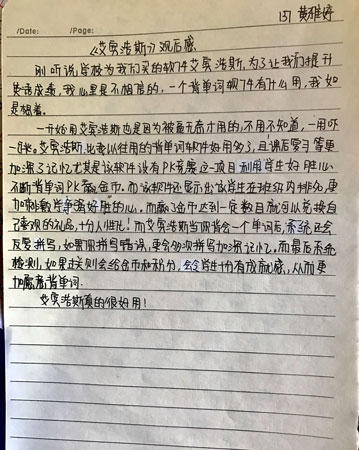 137 黄雅婷
/Date: /Page:
《艾宾浩斯》观后感
刚听说,学校为我们买的软件艾宾浩斯,为了让我们提升
英语成绩,我心里是不相信的,一个背单词软件有什么用,我如
是想着。
一开始用艾宾浩斯也是因为被逼无奈才用的,不用不知道,一用吓
一跳。艾宾浩斯,比我以往用的背单词软件好用多了,且课后复习等更
加深了记忆尤其是该软件设有PK竞赛这一项目利用学生好胜心
不断背单词PK赢金币。而该软件还显示出该学生在班级内排名,更
加刺激学生争强好胜的心,而赢了金币达到一定数目就可以兑换自
己喜欢的礼品,十分人性化!而艾宾浩斯当你背会一个单词后,系统还会
反复拼写,如果你拼写错误,更会多次拼写加深记忆,而最后系统
检测,如果过关则会给金币和积分,会令学生十分有成就感,从而更
加愿意背单词。
艾宾浩斯真的很好用!